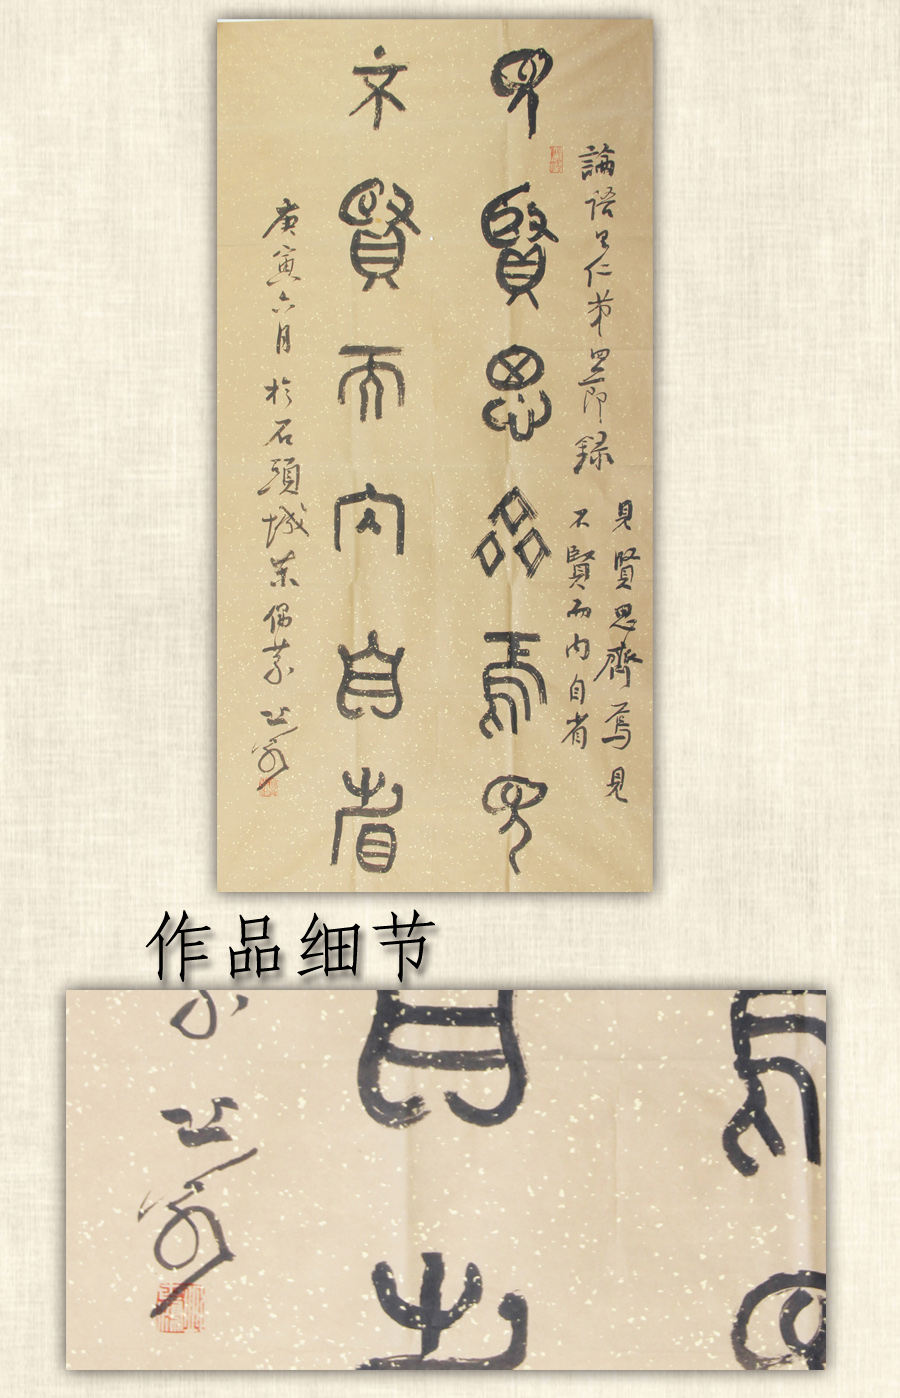 論語里仁第四節録
見賢思齊焉見
不賢而内自省
見賢思齊焉見
不賢而内自省
庚寅六月於石頭城
作品细节